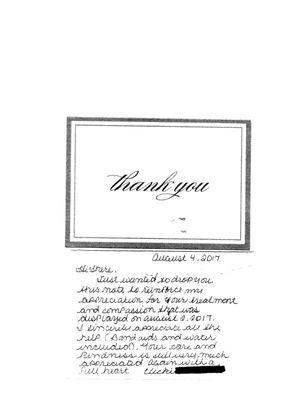 thank you
August 4, 2017
Hi there,
Just wanted to drop you
this note to reinforce my
appreciation for your treatment
and compassion that was
displayed on August 2, 2017.
I sincerely appreciate all the
help (Bandaids and water
included). Your care and
kindness is still very much
appreciated again with a
full heart